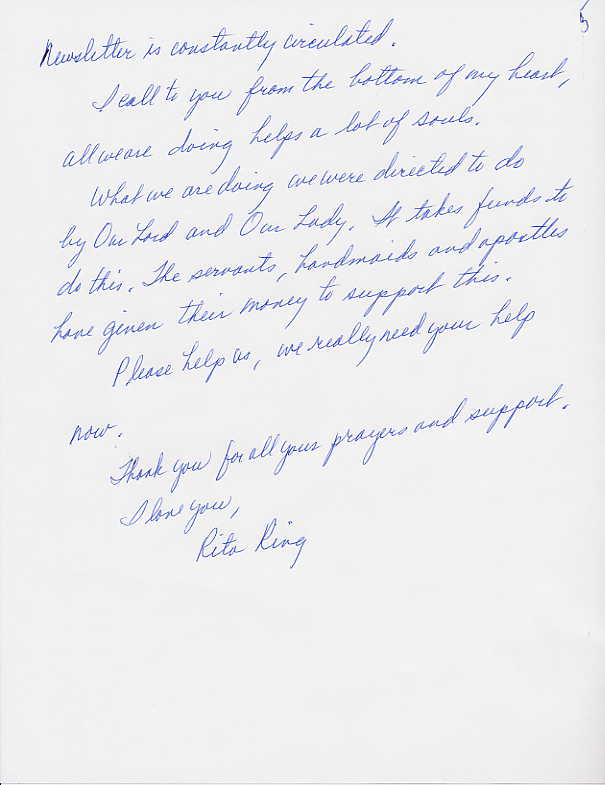 5
Newsletter is constantly circulated.
I call to you from the bottom of my heart,
all we are doing helps a lot of souls.
What we are doing we were directed to do
by Our Lord and Our Lady. It takes funds to
do this. The servants, handmaids and apostles
have given their money to support this.
Please help us, we really need your help
now.
Thank you for all your prayers and support.
I love you,
Rita Ring